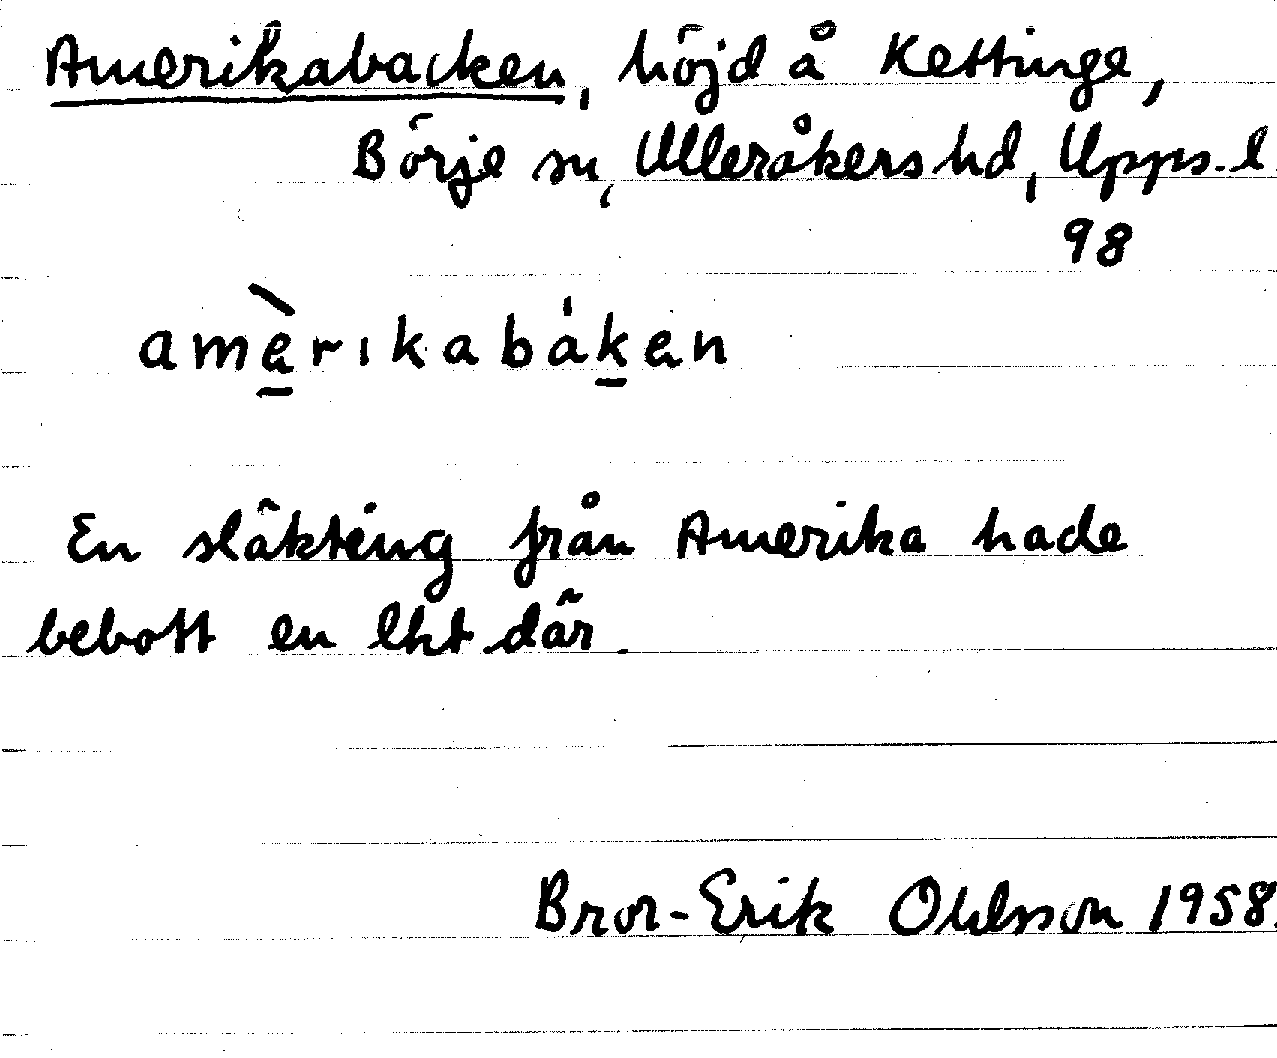 Amerikabacken, höjd å Kettinge,
Börje sn, Ulleråkers hd, Upps. l
98
amèrikabáken
En släkting från Amerika hade
bebott en lht där.
Bror-Erik Ohlsson 1958.